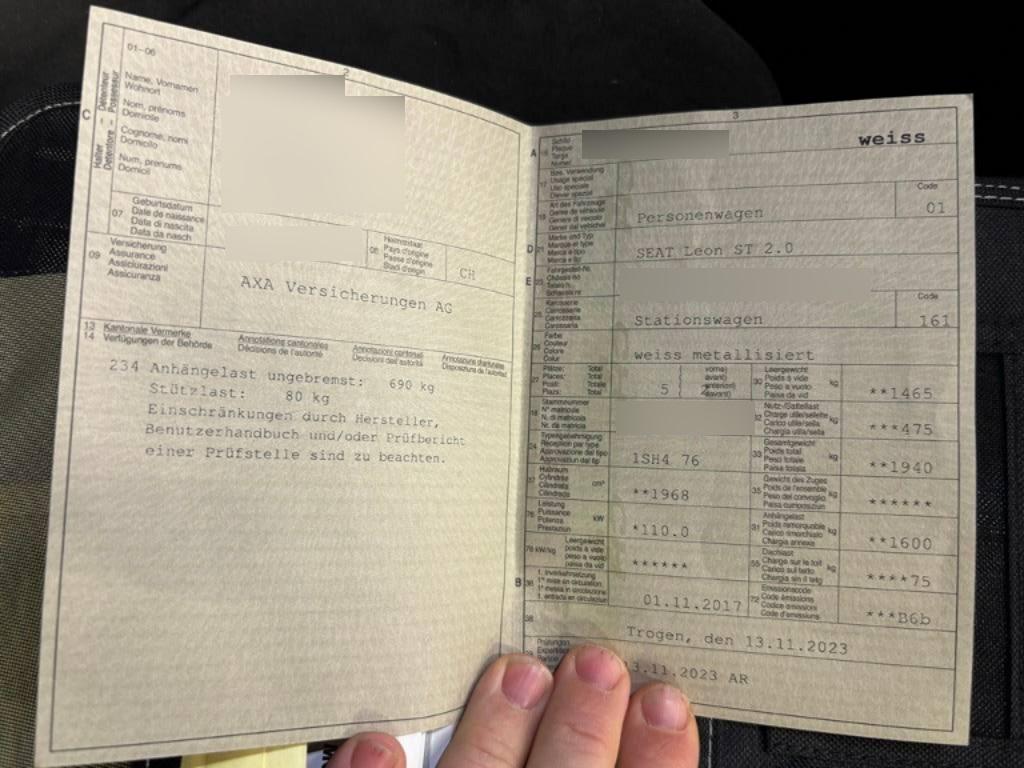 2
01-06
C
Halter Détenteur
Detentore Possessur
Name, Vornamen
Wohnort
Nom, prénoms
Domicile
Cognome, nomi
Domicilio
Num, prenums
Domicil
07
Geburtsdatum
Date de naissance
Data di nascita
Data da nasch
08
Heimatstaat
Pays d'origine
Paese d'origine
Stadi d'origin
CH
09
Versicherung
Assurance
Assicurazioni
Assicuranza
AXA Versicherungen AG
13 Kantonale Vermerke
14 Verfügungen der Behörde
Annotations cantonales
Décisions de l'autorité
Annotazioni cantonali
Decisioni dell'autorità
Annotaziuns chantunalas
Disposiziuns da l'autoritad
234 Anhängelast ungebremst: 690 kg
Stützlast: 80 kg
Einschränkungen durch Hersteller,
Benutzerhandbuch und/oder Prüfbericht
einer Prüfstelle sind zu beachten.
3
A
Schild
Plaque
Targa
Numer
weiss
17
Bes. Verwendung
Usage spécial
Uso speciale
Diever spezial
19
Art des Fahrzeugs
Genre de véhicule
Genere di veicolo
Gener dal vehichel
Personenwagen
Code
01
D
21
Marke und Typ
Marque et type
Marca e tipo
Marca e tip
SEAT Leon ST 2.0
E
23
Fahrgestell-Nr.
Châssis no
Telaio n.
Karosserie
Carrosserie
Carrozzeria
Carossaria
Stationswagen
Code
161
26
Farbe
Couleur
Colore
Colur
weiss metallisiert
27
Plätze: Total
Places: Total
Posti: Totale
Plazs: Total
5
vorne
avant
anteriori
davant
2
30
Leergewicht
Poids à vide
Peso a vuoto
Paisa da vid
kg
**1465
18
Stammnummer
N° matricule
N. di matricola
Nr. da matricla
32
Nutz-/Sattellast
Charge utile/sellette
Carico utile/sella
Chargia utila/sella
kg
***475
24
Typengenehmigung
Réception par type
Approvazione del tipo
Approvaziun dal tip
1SH4 76
33
Gesamtgewicht
Poids total
Peso totale
Paisa totala
kg
**1940
37
Hubraum
Cylindrée
Cilindrata
Cilindrada
cm³
**1968
35
Gewicht des Zuges
Poids de l'ensemble
Peso del convoglio
Paisa cumposiziun
kg
******
76
Leistung
Puissance
Potenza
Prestaziun
kW
*110.0
31
Anhängelast
Poids remorquable
Carico rimorchiato
Chargia annexa
kg
**1600
78 kW/kg
Leergewicht
poids à vide
peso a vuoto
paisa da vid
******
55
Dachlast
Charge sur le toit
Carico sul tetto
Chargia sin il tetg
kg
****75
B
36
1. Inverkehrsetzung
1re mise en circulation
1a messa in circolazione
1. entrada en circulaziun
01.11.2017
72
Emissionscode
Code émissions
Codice emissioni
Code d'emissiuns
***B6b
38
Trogen, den 13.11.2023
39
Prüfungen
3.11.2023 AR